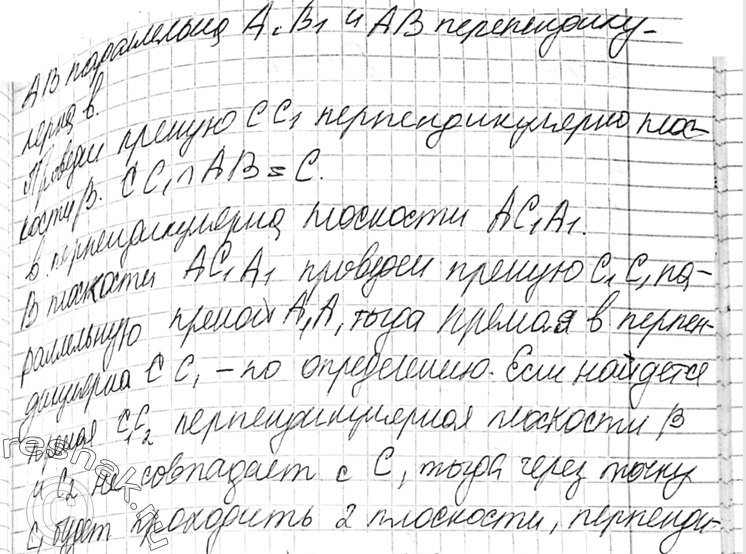 AB параллельна A₁B₁ и AB перпендику-
лярна в.
Проведем прямую CC₁ перпендикулярно плос-
кости β. CC₁ ∩ AB = C.
в перпендикулярна плоскости AC₁A₁.
В плоскости AC₁A₁ проведем прямую C₁C, па-
раллельную прямой A₁A, тогда прямая в перпен-
дикулярна CC₁ – по определению. Если найдется
прямая C₁C₂ перпендикулярная плоскости β
и C₂ не совпадает с C, тогда через точку
C₁ будет проходить 2 плоскости, перпенди-
reshak.ru